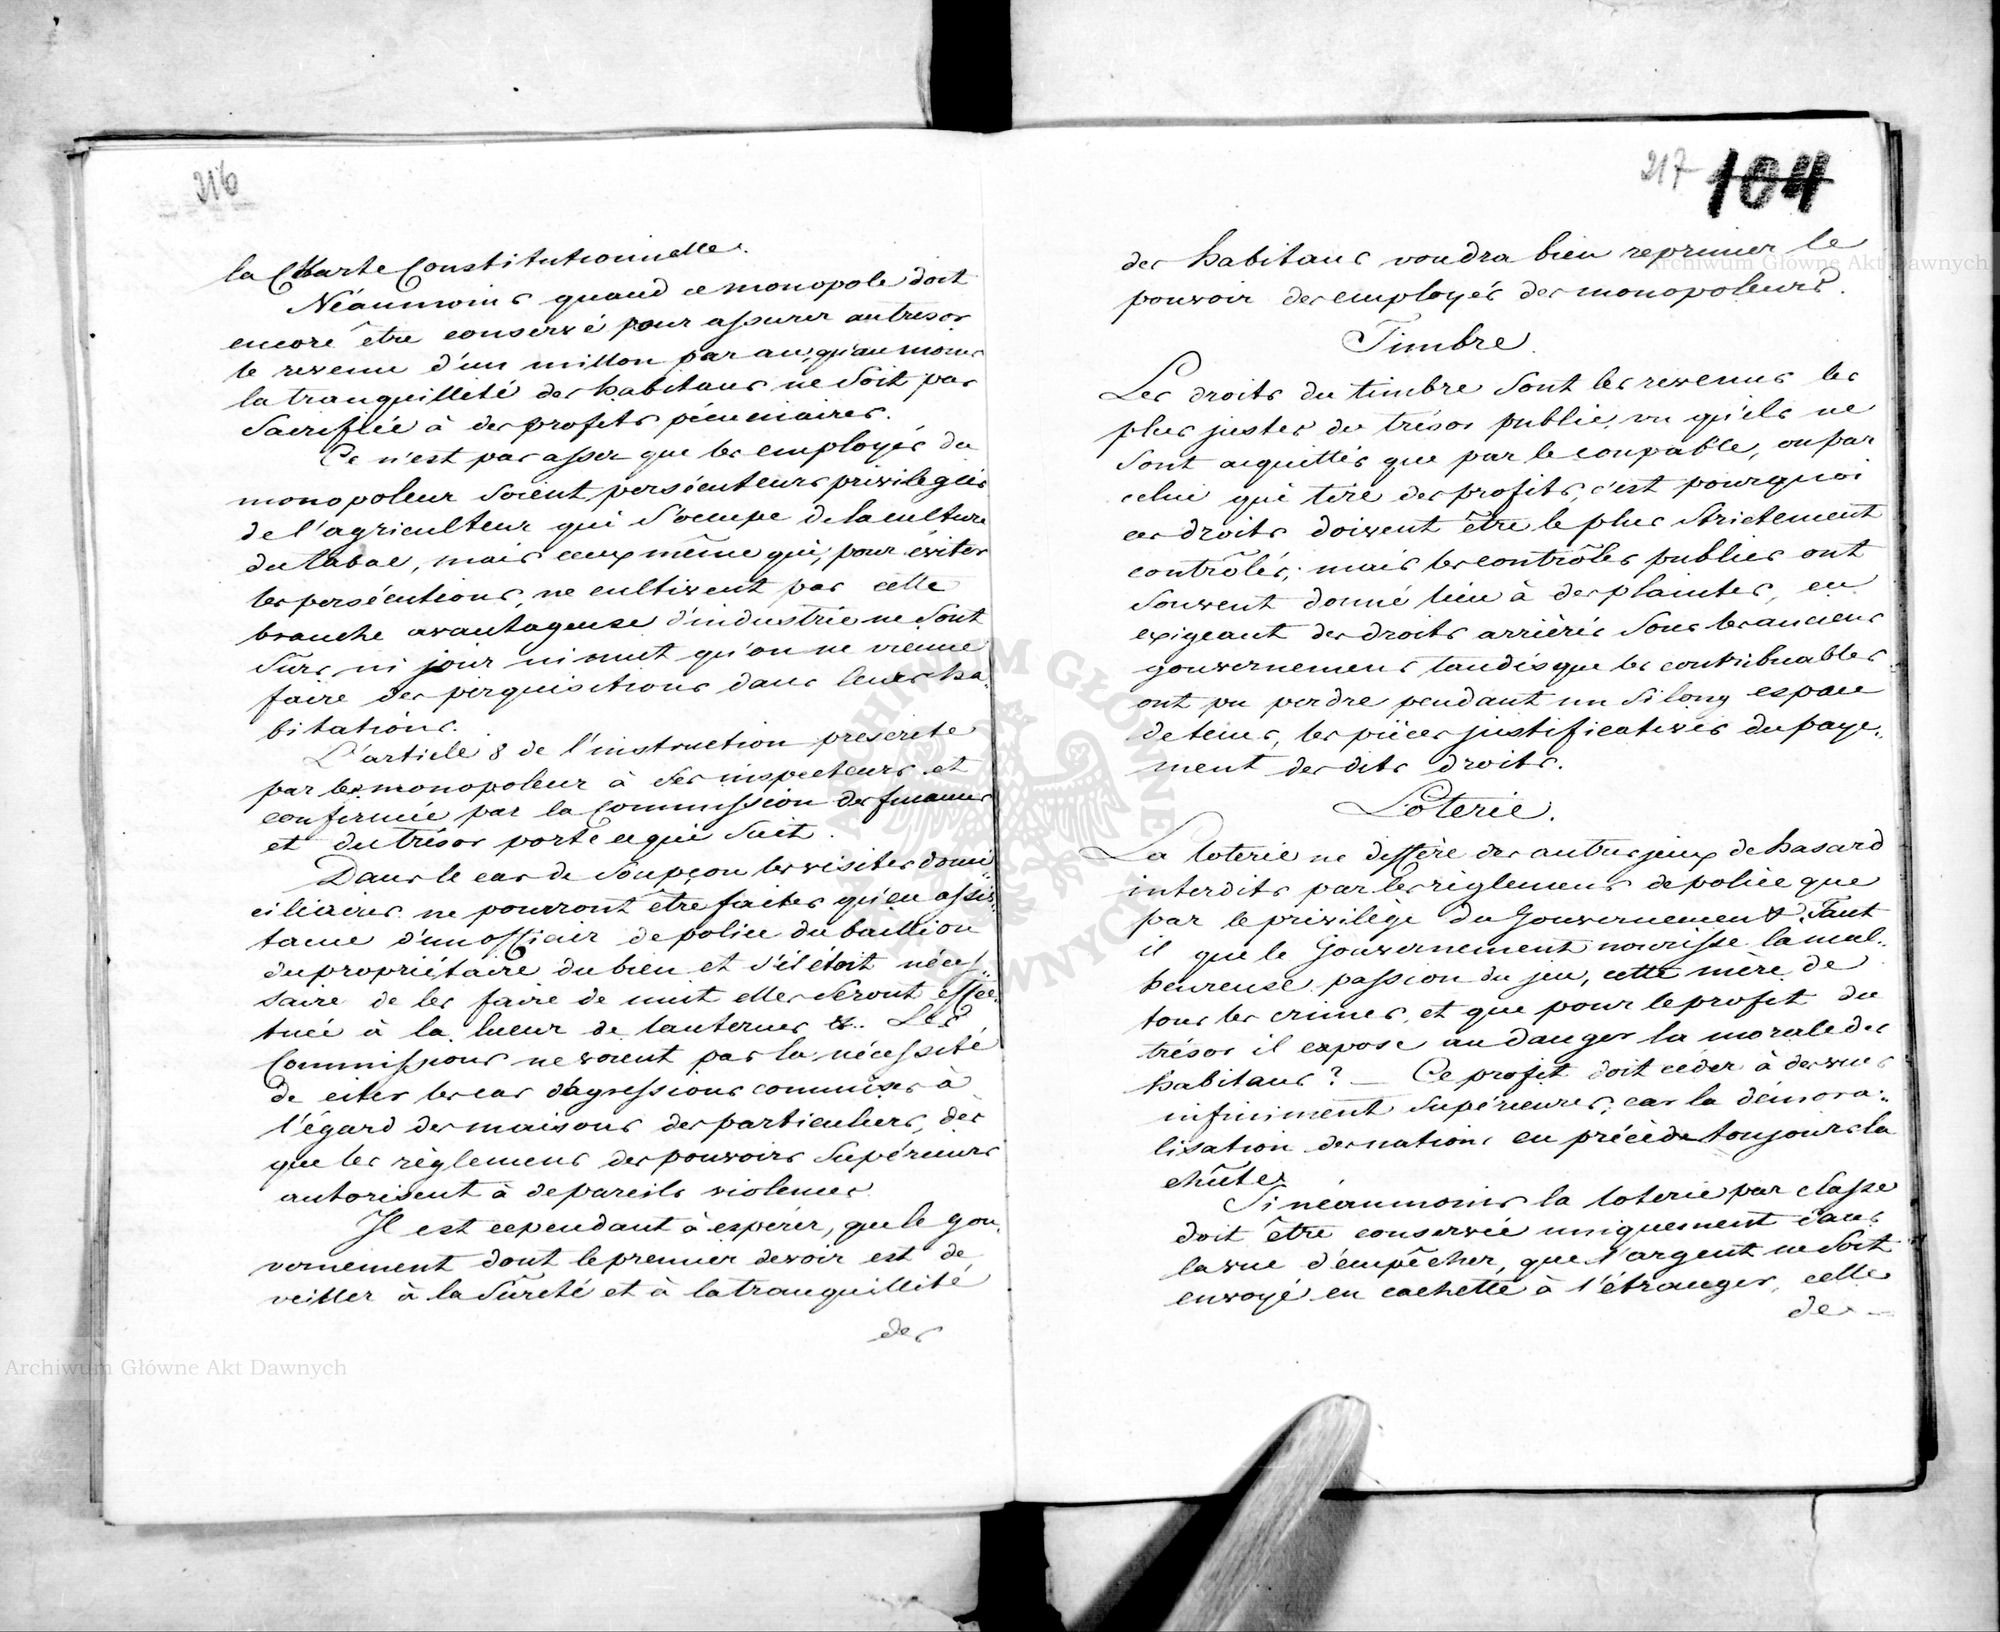 216
la Charte Constitutionnelle.
Néanmoins quand ce monopole doit
encore être conservé pour assurer au tresor
le revenu d'un millon par an, qu'au moins
la tranquillité des habitans ne soit pas
sacrifiée à des profits pécuniaires.
Ce n'est pas assez que les employés du
monopoleur soient persécuteurs privilegiés
de l'agriculteur qui s'occupe de la culture
du tabac, mais ceux même qui, pour éviter
les persécutions, ne cultivent pas cette
branche avantageuse d'industrie ne sont
sûrs ni jour ni nuit qu'on ne vienne
faire des perquisitions dans leurs ha-
bitations.
L'article 8 de l'instruction prescrite
par le monopoleur à ses inspecteurs et
confirmée par la Commission des finances
et du trésor porte ce qui suit.
Dans le cas de soupçon les visites domi-
ciliaires ne pourront être faites qu'en assis-
tance d'un officier de police du baillion
du propriétaire du bien et s'il étoit néces-
saire de les faire de nuit elles seront effec-
tuée à la lueur de lanternes &. Les
Commissions ne voient pas la nécessité
de citer les cas d'agressions commises à
l'égard des maisons des particuliers, dès
que les règlemens des pouvoirs supérieurs
autorisent à de pareils violences
Il est cependant à espérer, que le gou-
vernement dont le premier devoir est de
veiller à la sûreté et à la tranquillité
des
217 104
des habitans voudra bien reprimer le
pouvoir des employés des monopoleurs.
Timbre.
Les droits du timbre sont les revenus les
plus justes du trésor public, vu qu'ils ne
sont acquittés que par le coupable, ou par
celui qui tire des profits, c'est pourquoi
ces droits doivent être le plus strictement
contrôlés; mais les contrôles publics ont
souvent donné lieu à des plaintes, en
exigeant des droits arriérés sous les anciens
gouvernemens tandis que les contribuables
ont pu perdre pendant un si long espace
de tems, les pièces justificatives du paye-
ment des dits droits.
Loterie.
La loterie ne diffère des autres jeux de hasard
interdits par les règlemens de police que
par le privilège du Gouvernement. Faut
il que le Gouvernement nourisse la mal-
heureuse passion du jeu, cette mère de
tous les crimes, et que pour le profit du
trésor il expose au danger la morale des
habitans? — Ce profit doit céder à des vues
infiniment supérieures; car la démora-
lisation des nations en précède toujours la
chûte.
Si néanmoins la loterie par classe
doit être conservée uniquement dans
la vue d'empêcher, que l'argent ne soit
envoyé en cachette à l'étranger, celle
de -
Archiwum Główne Akt Dawnych
Archiwum Główne Akt Dawnych
ARCHIWUM GŁÓWNE AKT DAWNYCH